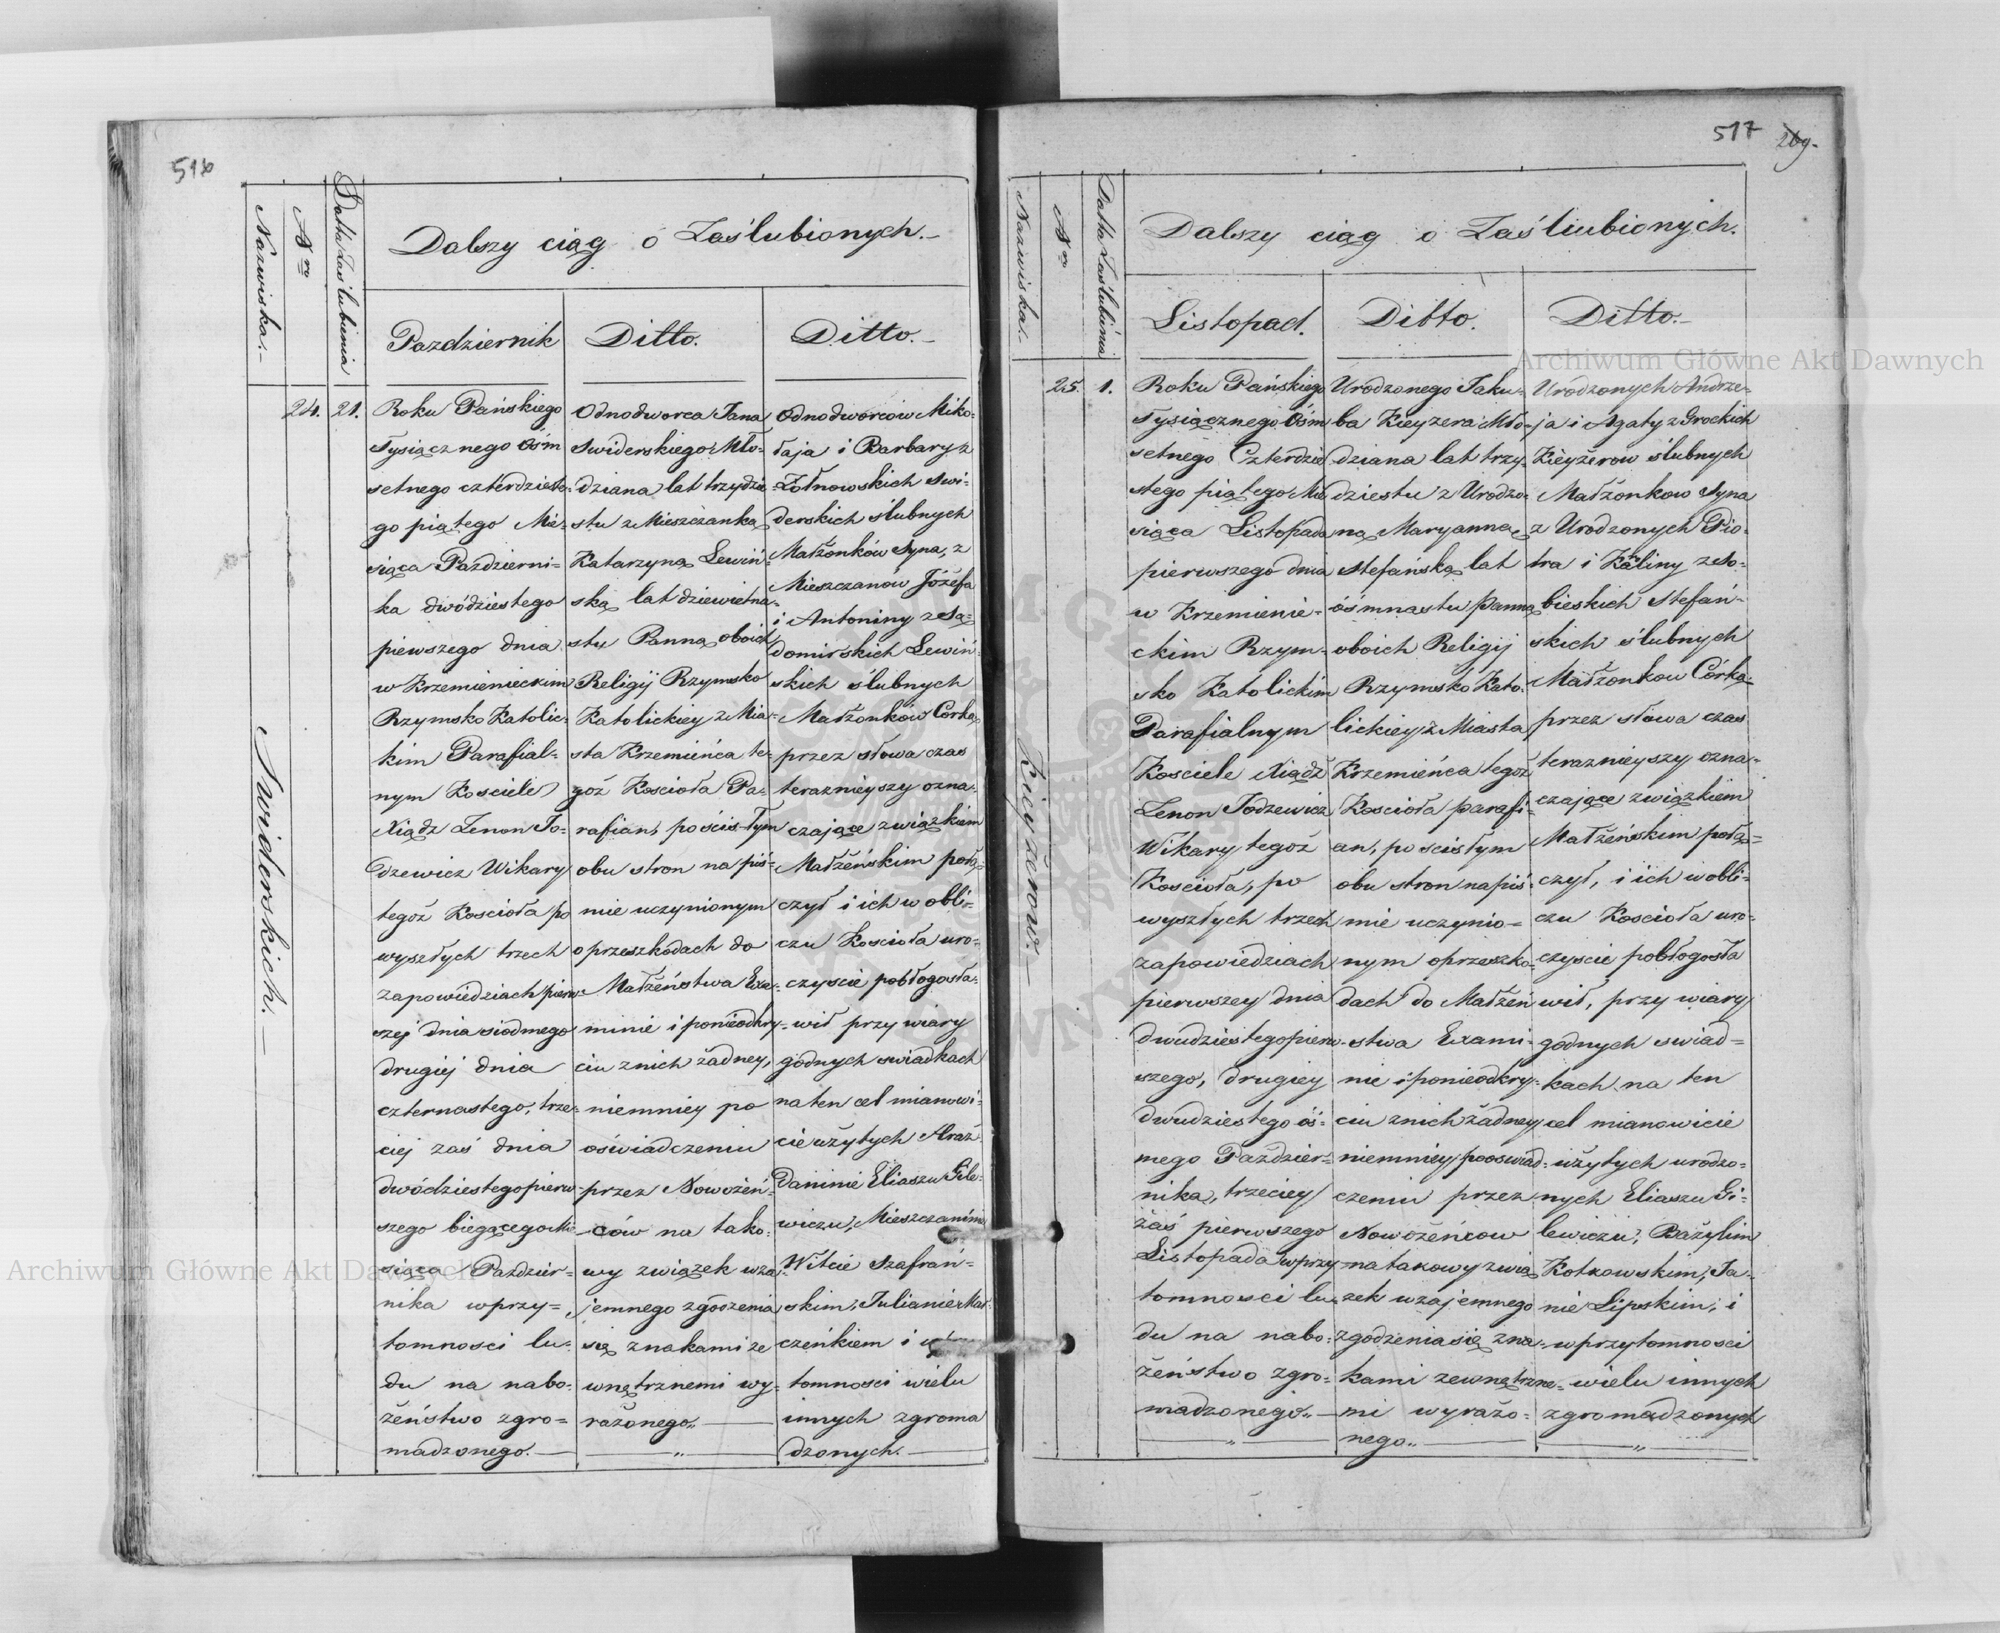 516
Nazwiska.
Nro
Data Zaślubienia
Dalszy ciąg o Zaślubionych.
Pazdziernik
Ditto.
Ditto.
24.
21.
Swiderskich.
Roku Pańskiego
Tysiącznego Ośm
setnego czterdzieste-
go piątego Mie-
siąca Październi-
ka dwódziestego
piewszego dnia
w Krzemienieckim
Rzymsko Katolic-
kim Parafial-
nym Kosciele
Xiądz Zenon Jo-
dzewicz Wikary
tegoż Kosciola po
wyszłych trzech
zapowiedziach pierw-
szej dnia siodmego
drugiej dnia
czternastego, trze-
ciej zaś dnia
dwódziestego pierw-
szego biegącego Mie-
siąca Paździer-
nika wprzy-
tomnosci lu-
du na nabo-
żeństwo zgro-
madzonego.
Odnodworca Jana
Swiderskiego Mło-
dziana lat trzydzie-
stu z Mieszczanką
Katarzyną Lewiń-
ską lat dziewietna-
stu Panną oboich
Religij Rzymsko
Katolickiey z Mia-
sta Krzemieńca te-
goż Kosciola Pa-
rafian, po ścisłym
obu stron na piś-
mie uczynionym
o przeszkodach do
Małżeństwa Exa-
minie i ponieodkry-
ciu znich żadney,
niemniey po
oświadczeniu
przez Nowożeń-
ców na tako-
wy związek wza-
jemnego zgodzenia
się znakami ze
wnętrznemi wy-
rażonego„
„
Odnodworców Miko-
łaja i Barbary z
Żołnowskich Swi-
derskich ślubnych
Małżonków Syna, z
Mieszczanów Józefa
i Antoniny z Są-
domirskich Lewiń-
skich ślubnych
Małżonków Córką
przez słowa czas
terazniejszy ozna-
czające związkiem
Małżeńskim połą-
czył i ich w obli-
czu Kosciola uro-
czyscie pobłogosła-
wił przy wiary
godnych swiadkach
na ten cel mianowi-
cie użytych
Eliaszu Gile-
wiczu, Mieszczaninie
Witcie Szafrań-
skim, Julianie Mar-
czeńkiem i w
tomnosci wielu
innych zgroma
dzonych.
517
269.
Nazwiska.
Nro
Data Zaślubienia
Dalszy ciąg o Zaśliubionych.
Listopad.
Ditto.
Ditto.
25.
1.
Kieyżerow.
Roku Pańskiego
Tysiącznego Ośm
setnego Czterdzie
stego piątego Mie
siąca Listopada
pierwszego dnia
w Krzemienie-
ckim Rzym-
sko Katolickim
Parafialnym
Kosciele Xiądz
Zenon Jodzewicz
Wikary tegoż
Kosciola, po
wyszłych trzech
zapowiedziach
pierwszey dnia
dwudziestego pierw-
szego, drugiey
dwudziestego óś-
mego Paździer-
nika, trzeciey
zaś pierwszego
Listopada wprzy-
tomnosci lu-
du na nabo-
żeństwo zgro-
madzonego„
„
Urodzonego Jaku-
ba Kieyzera Mło-
dziana lat trzy-
dziestu z Urodzo-
ną Maryanną
Stefańską lat
óśmnastu Panną
oboich Religij
Rzymsko Kato-
lickiey z Miasta
Krzemieńca tegoż
Kosciola parafi-
an, po scisłym
obu stron na piś-
mie uczynio-
nym o przeszko-
dach do Małżeń
stwa Exami-
nie i ponieodkry-
ciu znich żadney
niemniey po oswiad-
czeniu przez
Nowożeńcow
na takowy zwią
zek wzajemnego
zgodzenia się zna-
kami zewnętrzne-
mi wyrażo-
nego„
Uródzonych Andrze-
ja i Agaty z Grockich
Kieyżerow ślubnych
Małżonkow Syna
z Urodzonych Pio-
tra i Kaliny z So-
bieskich Stefań-
skich ślubnych
Małżonkow Córką
przez słowa czas
terazniejszy ozna-
czające związkiem
Małżeńskim połą-
czył, i ich w obli-
czu Kosciola uro-
czyscie pobłogosła
wił, przy wiary
godnych swiad-
kach na ten
cel mianowicie
użytych urodzo-
nych Eliaszu Gi-
lewiczu, Bażylim
Kotkowskim, Ja-
nie Lipskim, i
w przytomnosci
wielu innych
zgromadzonych
„
Archiwum Główne Akt Dawnych
Archiwum Główne Akt Dawnych